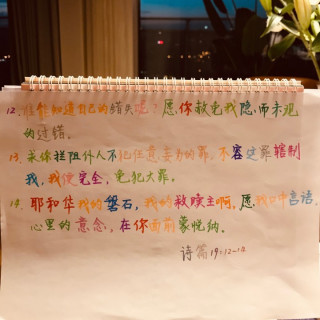 12. 谁能知道自己的错失呢?愿你赦免我隐而未现
的过错。
13. 求你拦阻仆人不犯任意妄为的罪,不容这罪辖制
我,我便完全,免犯大罪。
14. 耶和华我的磐石,我的救赎主啊,愿我口中的言语,
心里的意念,在你面前蒙悦纳。
诗篇19:12-14